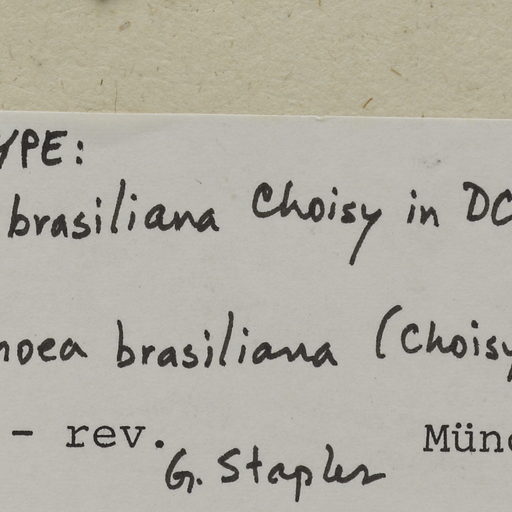 YPE:
brasiliana Choisy in DC
noea brasiliana (Choisy
- rev. Münc
G. Staples